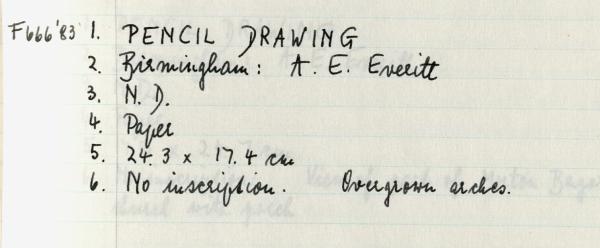 F666'83 1. PENCIL DRAWING
2. Birmingham: A. E. Everitt
3. N.D.
4. Paper
5. 24.3 x 17.4 cm
6. No inscription. Overgrown arches.